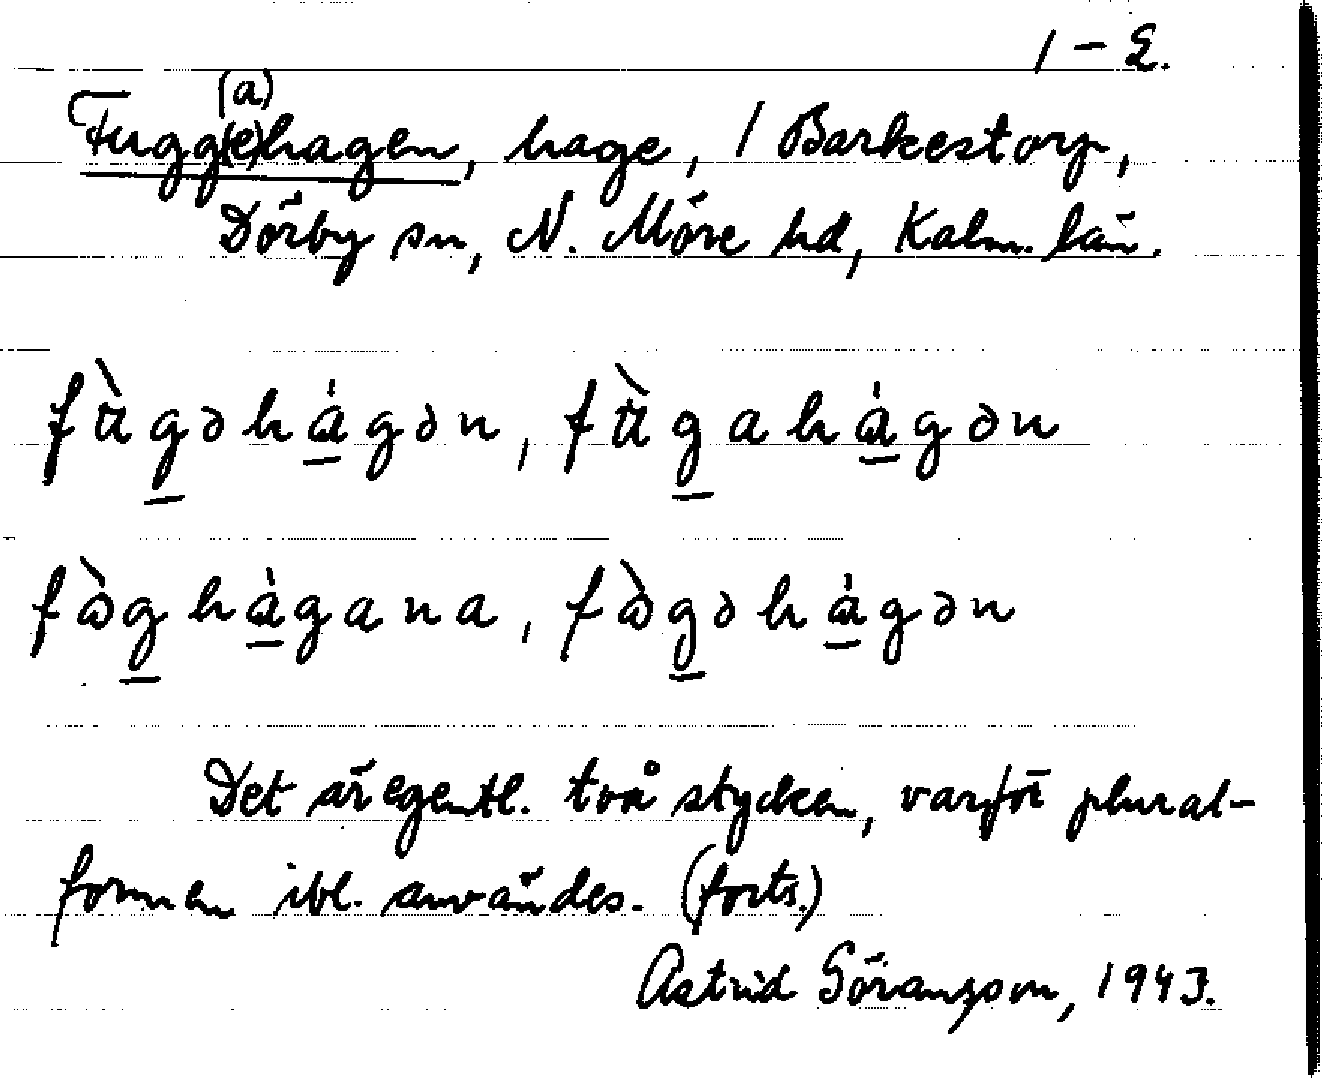 1 – 2.
(a)
Fugg(e)hagen, hage, / Barkestorp,
Dörby sn, N. Möre hd, Kalm. län.
fàgəhágən, fàgahágən
fòghágana, fògəhágən
Det är egentl. två stycken, varför plural-
formen ibl. användes. (forts.)
Astrid Göransson, 1943.